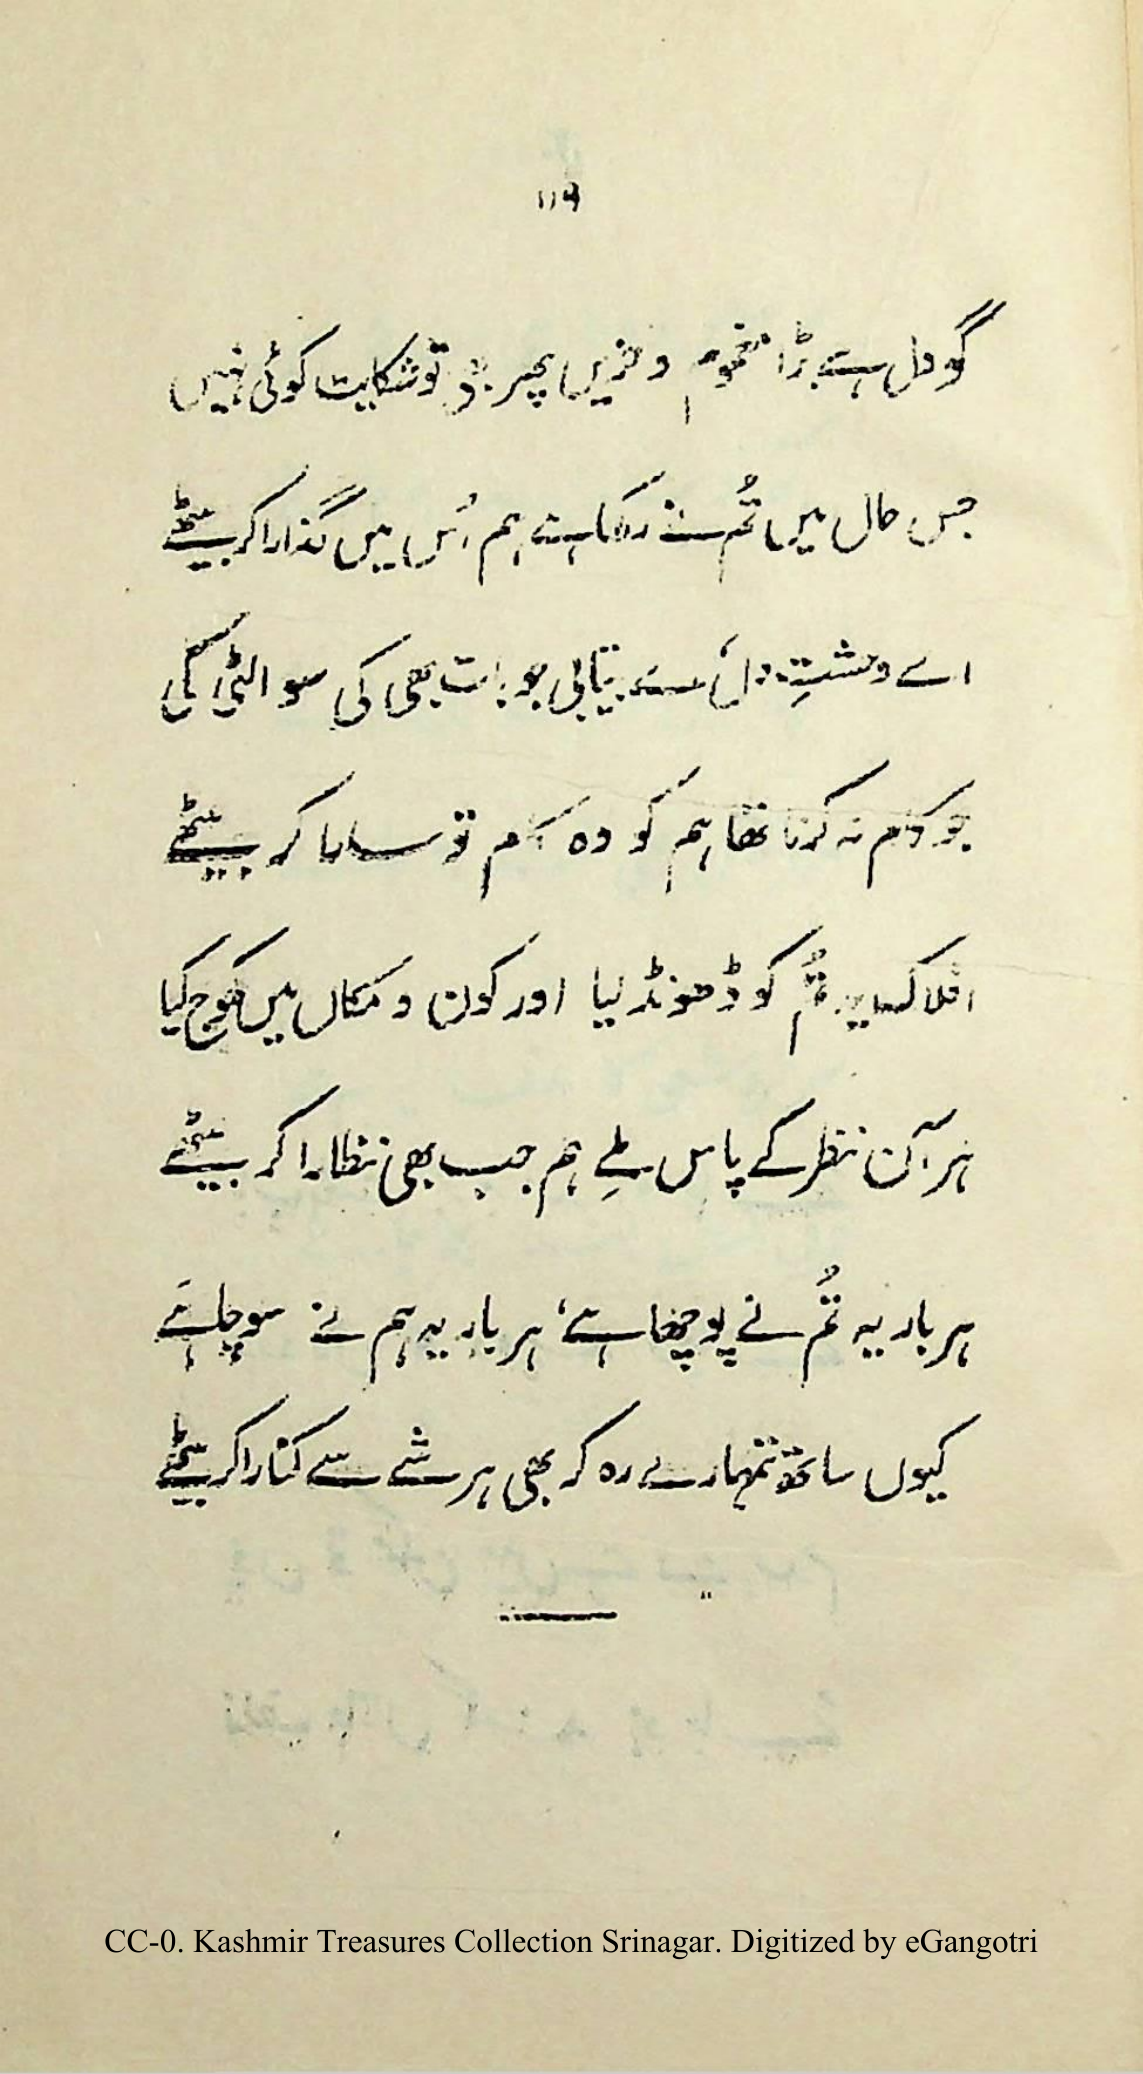 ۱۱۹
گو دل ہے بڑا مغموم و حزیں پھر بھی تو شکایت کوئی نہیں
جس حال میں تُم نے رکھا ہے ہم اُس میں گذارا کر بیٹھے
اے وحشتِ دل، بیتابی جو بات بھی کی سو الٹی کی
جو کام نہ کرنا تھا ہم کو وہ کام تو سارا کر بیٹھے
افلاک پہ تُم کو ڈھونڈ لیا اور کون و مکاں میں کھوج کیا
ہر آن نظر کے پاس ملے ہم جب بھی نظارا کر بیٹھے
ہر بار یہ تُم نے پوچھا ہے، ہر بار یہ ہم نے سوچا ہے
کیوں ساتھ تمہارے رہ کر بھی ہر شے سے کنارا کر بیٹھے
CC-0. Kashmir Treasures Collection Srinagar. Digitized by eGangotri